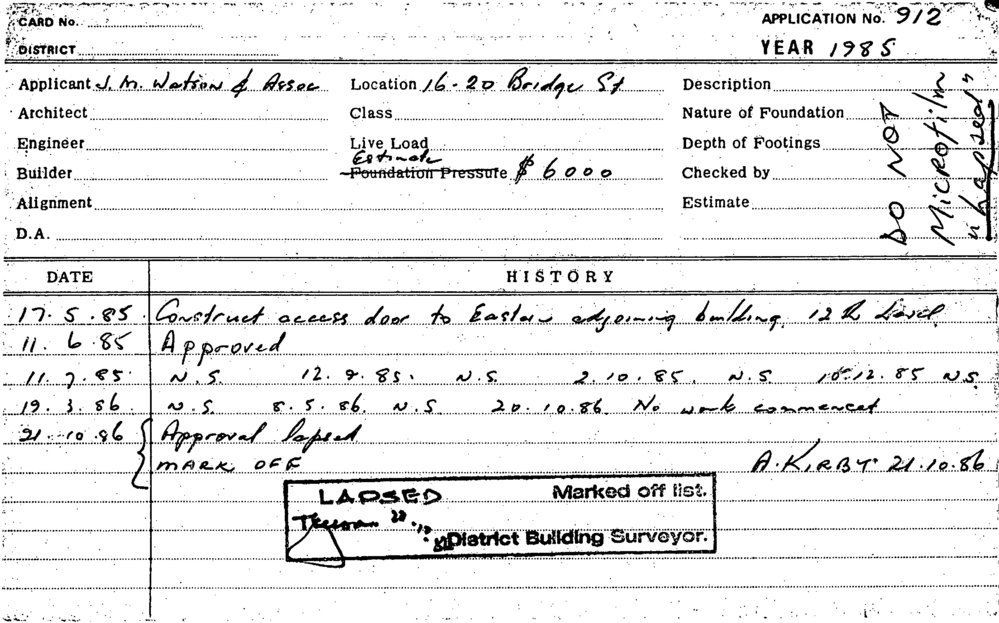 CARD No.
APPLICATION No. 912
DISTRICT
YEAR 1985
Applicant J. M. Watson & Assoc Location 16-20 Bridge St Description
Architect Class Nature of Foundation
Engineer Live Load Depth of Footings
Estimate
Builder Foundation Pressure $ 6000 Checked by
Alignment Estimate
D.A.
DO NOT
MICROFILM
"Lapsed"
DATE HISTORY
17. 5. 85 Construct access door to Eastern adjoining building. 12th Level
11. 6. 85 Approved
11. 7. 85. N.S. 12. 9. 85. N.S. 2. 10. 85. N.S. 10.12. 85 N.S.
19. 3. 86. N.S. 8. 5. 86. N.S. 20. 10. 86. No work commenced
21. 10. 86 Approval lapsed
MARK OFF A. KIRBY 21.10.86
LAPSED Marked off list.
District Building Surveyor.